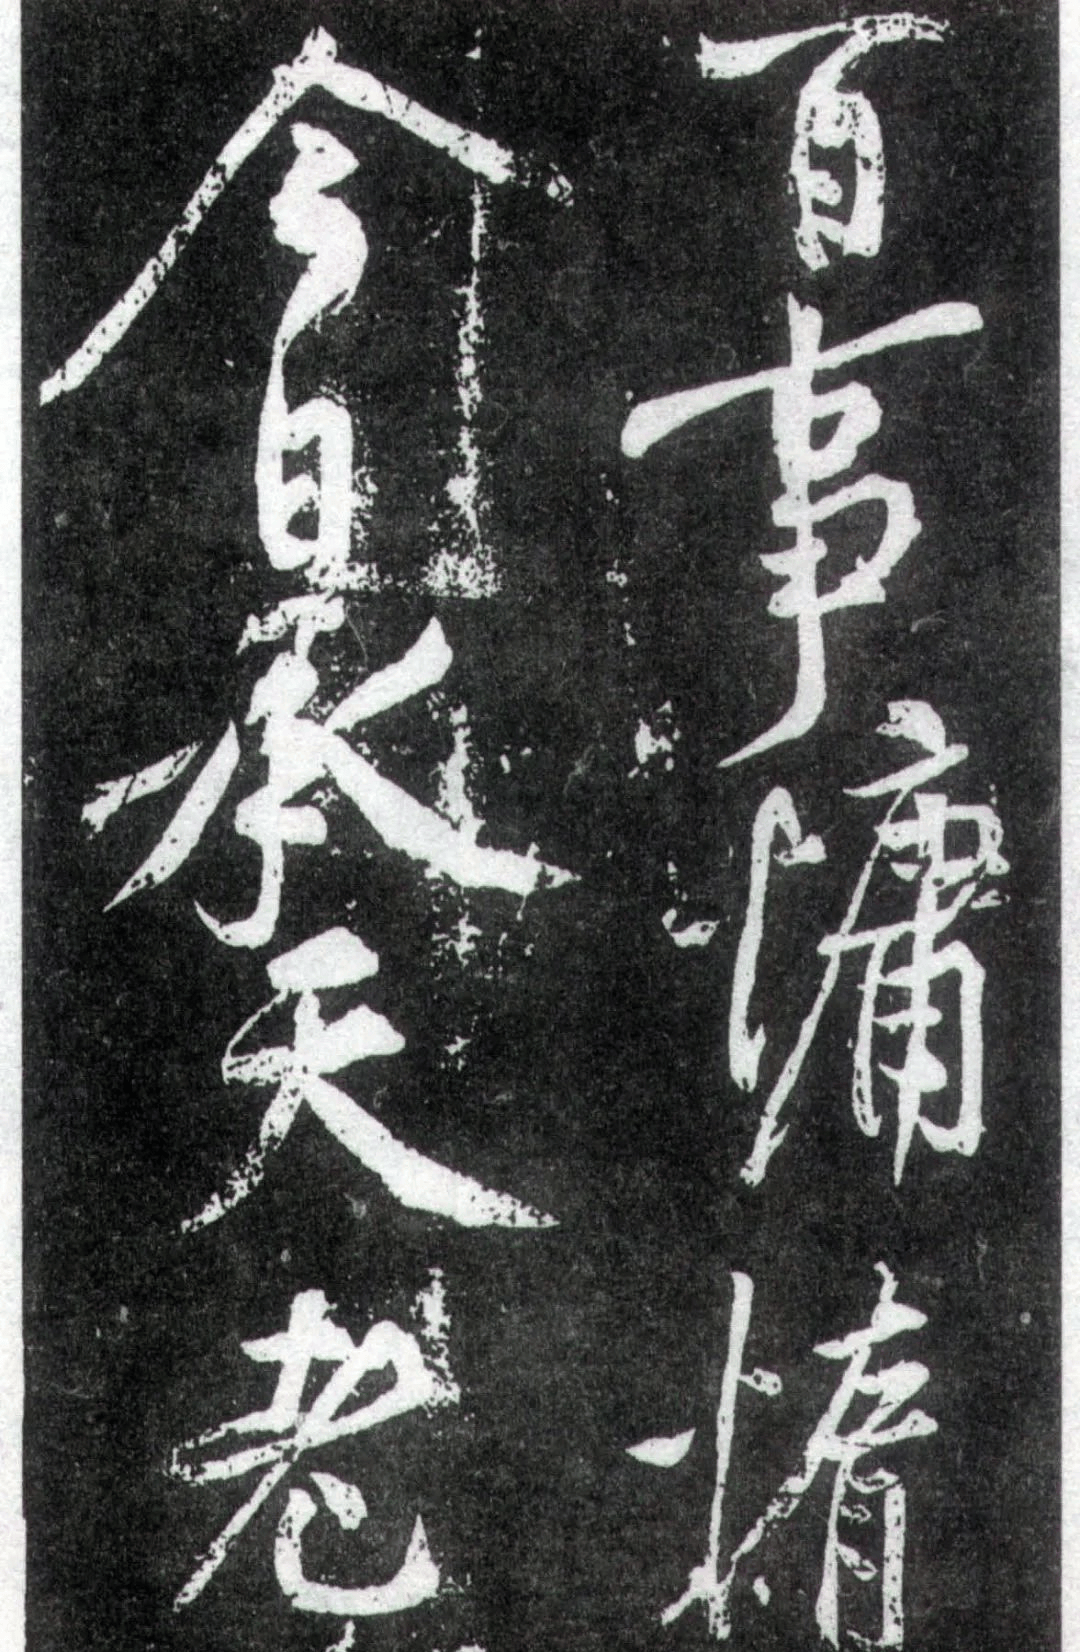 百事慵惰
今日承天老